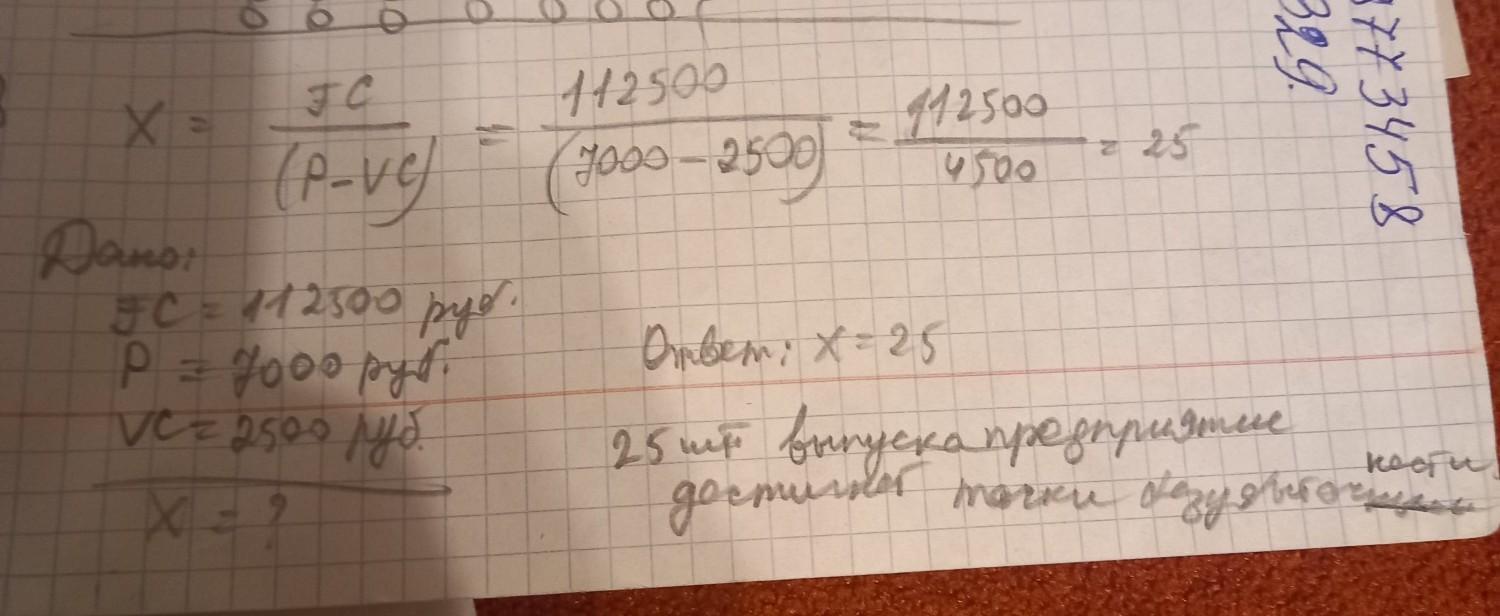 X = FC / (P - VC) = 112500 / (7000 - 2500) = 112500 / 4500 = 25
Дано:
FC = 112500 руб.
P = 7000 руб.
VC = 2500 руб.
X = ?
Ответ: X = 25
25 шт выпуска предприятие
достигнет точки безубыточности
3773458
329